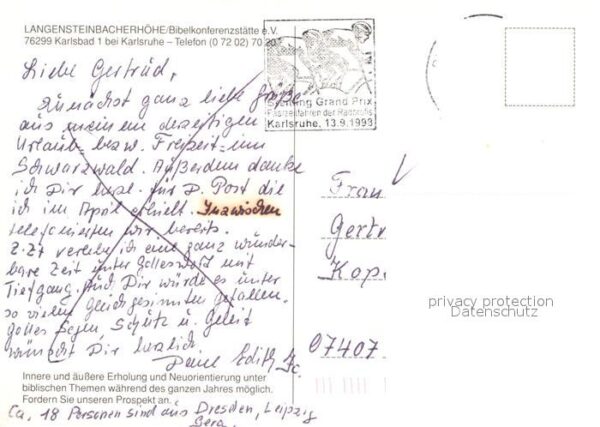 LANGENSTEINBACHERHÖHE/Bibelkonferenzstätte e.V.
76299 Karlsbad 1 bei Karlsruhe – Telefon (0 72 02) 70 20
Grand Prix
Karlsruhe, 13.9.1993
Liebe Gertrud,
zunächst ganz liebe Grüße
aus meinem derzeitigen
Urlaub bzw. Freizeit im
Schwarzwald. Außerdem danke
ich Dir herzl. für D. Post die
ich im April erhielt. Inzwischen
telefonierten wir bereits.
Z.Zt verlebe ich eine ganz wunder-
bare Zeit unter Gottes Wort mit
Tiefgang. Auch Dir würde es unter
so vielen gleichgesinnten gefallen.
Gottes Segen Schutz u. Geleit
wünscht Dir herzlich
Deine Edith
Frau
Gertr
Kop
07407
privacy protection
Datenschutz
Innere und äußere Erholung und Neuorientierung unter
biblischen Themen während des ganzen Jahres möglich.
Fordern Sie unseren Prospekt an.
Ca. 18 Personen sind aus Dresden, Leipzig
Gera.